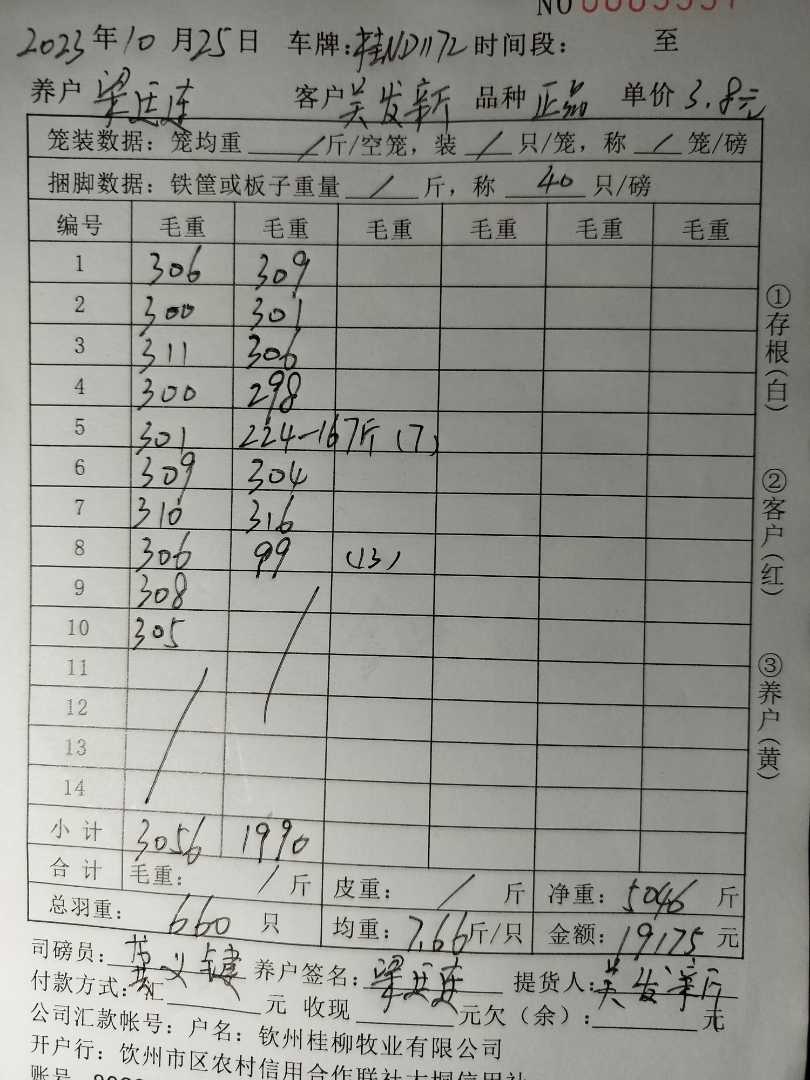 NO 0005557
2023年10月25日 车牌:桂ND1172 时间段: 至
养户 梁廷连 客户 吴发新 品种 正品 单价 3.8元
笼装数据：笼均重 / 斤/空笼，装 / 只/笼，称 / 笼/磅
捆脚数据：铁筐或板子重量 / 斤，称 40 只/磅
编号 毛重 毛重 毛重 毛重 毛重 毛重
1 306 309
2 300 301
3 311 306
4 300 298
5 301 224-167斤(7)
6 309 304
7 310 316
8 306 99 (13)
9 308
10 305
11
12
13
14
小计 3056 1990
合计 毛重： / 斤 皮重： / 斤 净重：5046 斤
总羽重： 660 只 均重：7.66斤/只 金额：19175 元
司磅员： 养户签名：梁廷连 提货人：吴发新
付款方式：汇 元 收现 元欠（余）： 元
公司汇款帐号：户名：钦州桂柳牧业有限公司
开户行：钦州市区农村信用合作联社大垌信用社
账号
①存根(白)
②客户(红)
③养户(黄)